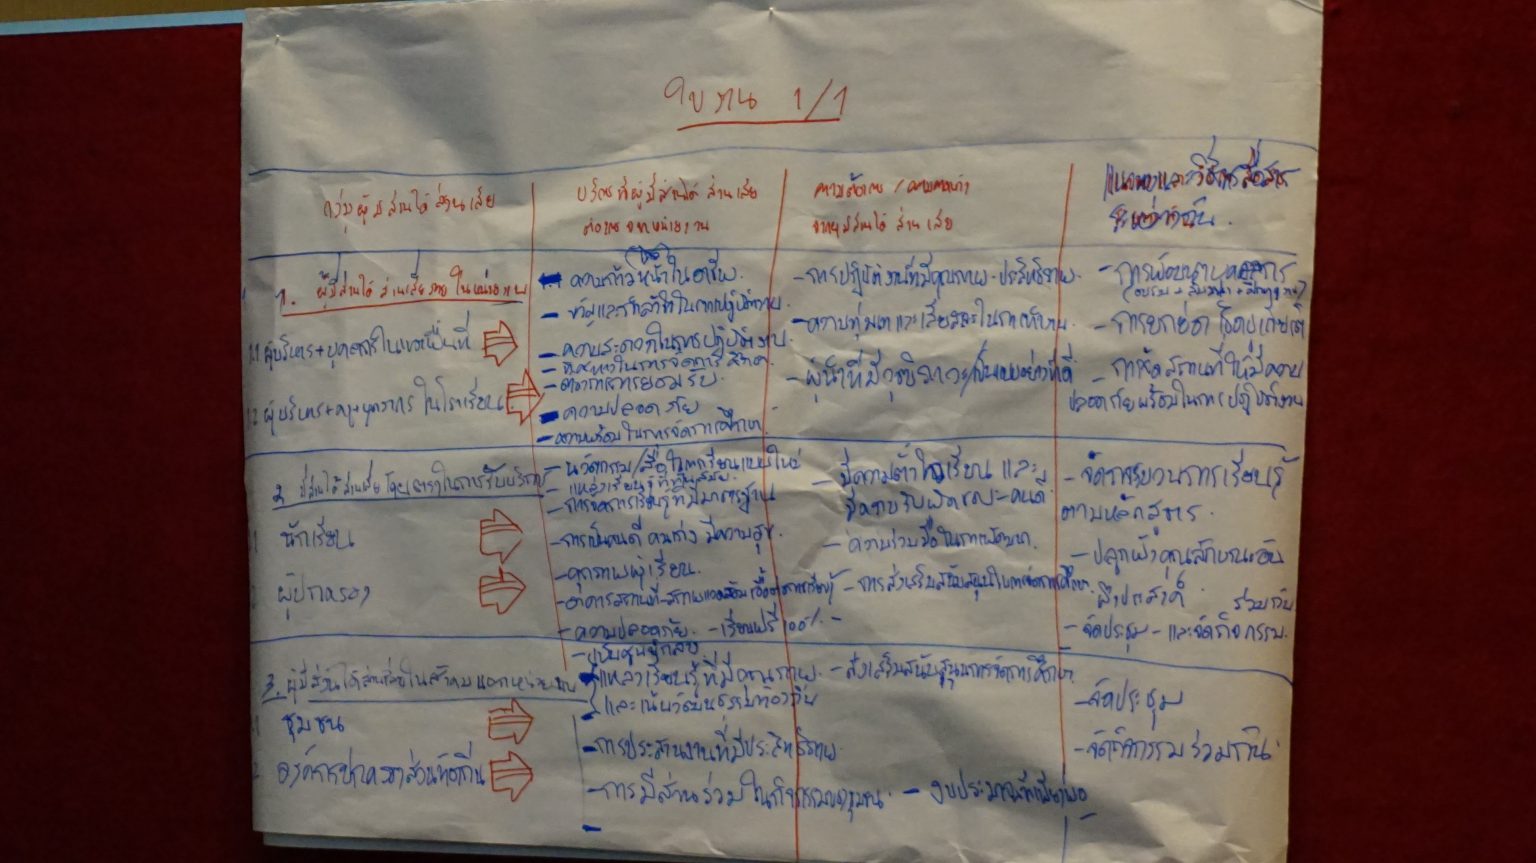 ใบงาน 1/1
กลุ่มผู้มีส่วนได้ส่วนเสีย
บริการที่ผู้มีส่วนได้ส่วนเสีย
ต้องการจากหน่วยงาน
ความต้องการ / ความคาดหวัง
จากผู้มีส่วนได้ส่วนเสีย
แนวทางและวิธีการสื่อสาร
ระหว่างกัน.
1. ผู้มีส่วนได้ส่วนเสียภายในหน่วยงาน
1.1 ผู้บริหาร+บุคลากรในเขตพื้นที่
1.2 ผู้บริหาร+ครู+บุคลากรในโรงเรียน
- ความก้าวหน้าในอาชีพ.
- ขวัญและกำลังใจในการปฏิบัติงาน
- ความสะดวกในการปฏิบัติงาน.
- ต้องการการยอมรับ
- ความปลอดภัย
- ความพร้อมในการจัดการศึกษา
- การปฏิบัติงานที่มีคุณภาพ-ประสิทธิภาพ
- ความทุ่มเทและเสียสละในการทำงาน.
- ผู้นำที่มีวุฒิภาวะ/เป็นแบบอย่างที่ดี
- การพัฒนาบุคลากร
(อบรม + สัมมนา + ศึกษาดูงาน)
- การยกย่อง เชิดชูเกียรติ
- การจัดสถานที่ให้มีความ
ปลอดภัยพร้อมในการปฏิบัติงาน
2. มีส่วนได้ส่วนเสียโดยตรงในการรับบริการ
นักเรียน
ผู้ปกครอง
- นวัตกรรม/สื่อในการเรียนแบบใหม่
- แหล่งเรียนรู้ที่ทันสมัย
- การจัดการเรียนรู้ที่มีมาตรฐาน
- การเป็นคนดี คนเก่ง มีความสุข
- คุณภาพผู้เรียน.
- อาคารสถานที่-สภาพแวดล้อมเอื้อต่อการเรียนรู้
- ความปลอดภัย. - เรียนฟรี 100%
- มีความตั้งใจเรียน และ
มีความรับผิดชอบ-คนดี
- ความร่วมมือในการพัฒนา.
- การส่งเสริมสนับสนุนในการจัดการศึกษา
- จัดกระบวนการเรียนรู้
ตามหลักสูตร.
- ปลูกฝังคุณลักษณะอัน
พึงประสงค์ ร่วมกัน
- จัดประชุม - และจัดกิจกรรม.
3. ผู้มีส่วนได้ส่วนเสียในสังคมนอกหน่วยงาน
ชุมชน
องค์กรปกครองส่วนท้องถิ่น
- มีแหล่งเรียนรู้ที่มีคุณภาพ.
และเน้นวัฒนธรรมท้องถิ่น
- การประสานงานที่มีประสิทธิภาพ
- การมีส่วนร่วมในกิจกรรมของชุมชน.
- ส่งเสริมสนับสนุนการจัดการศึกษา
- งบประมาณที่เพียงพอ
- จัดประชุม
- จัดกิจกรรมร่วมกัน.